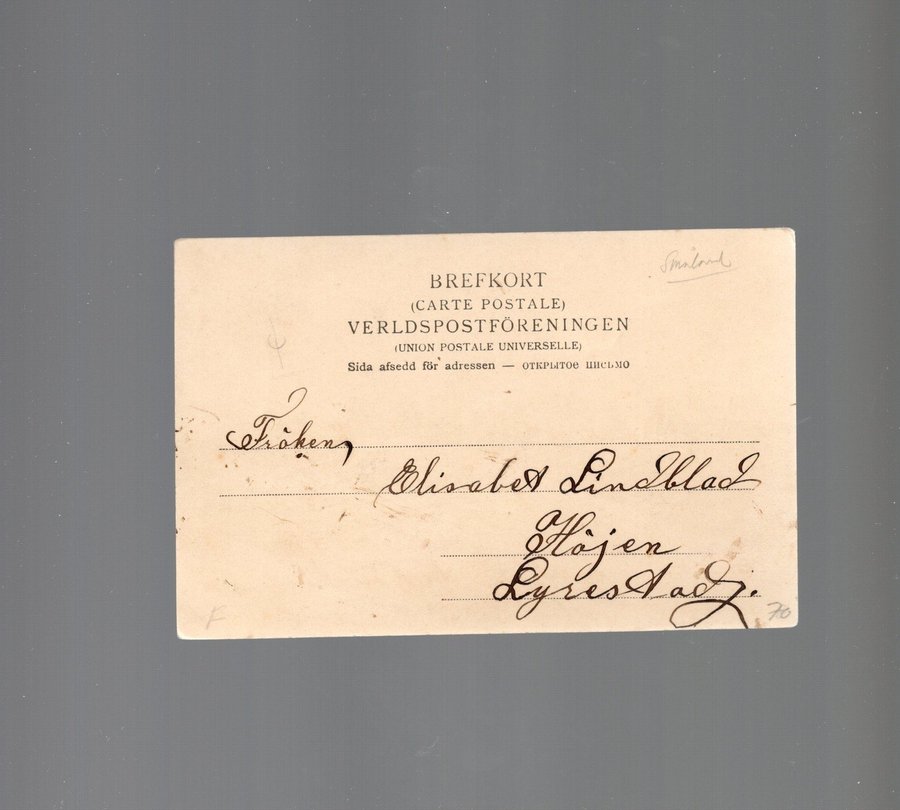 Småland
BREFKORT
(CARTE POSTALE)
VERLDSPOSTFÖRENINGEN
(UNION POSTALE UNIVERSELLE)
Sida afsedd för adressen — ОТКРЫТОЕ ПИСЬМО
Fröken,
Elisabet Lindblad
Höjen
Lyrestad.
F
70